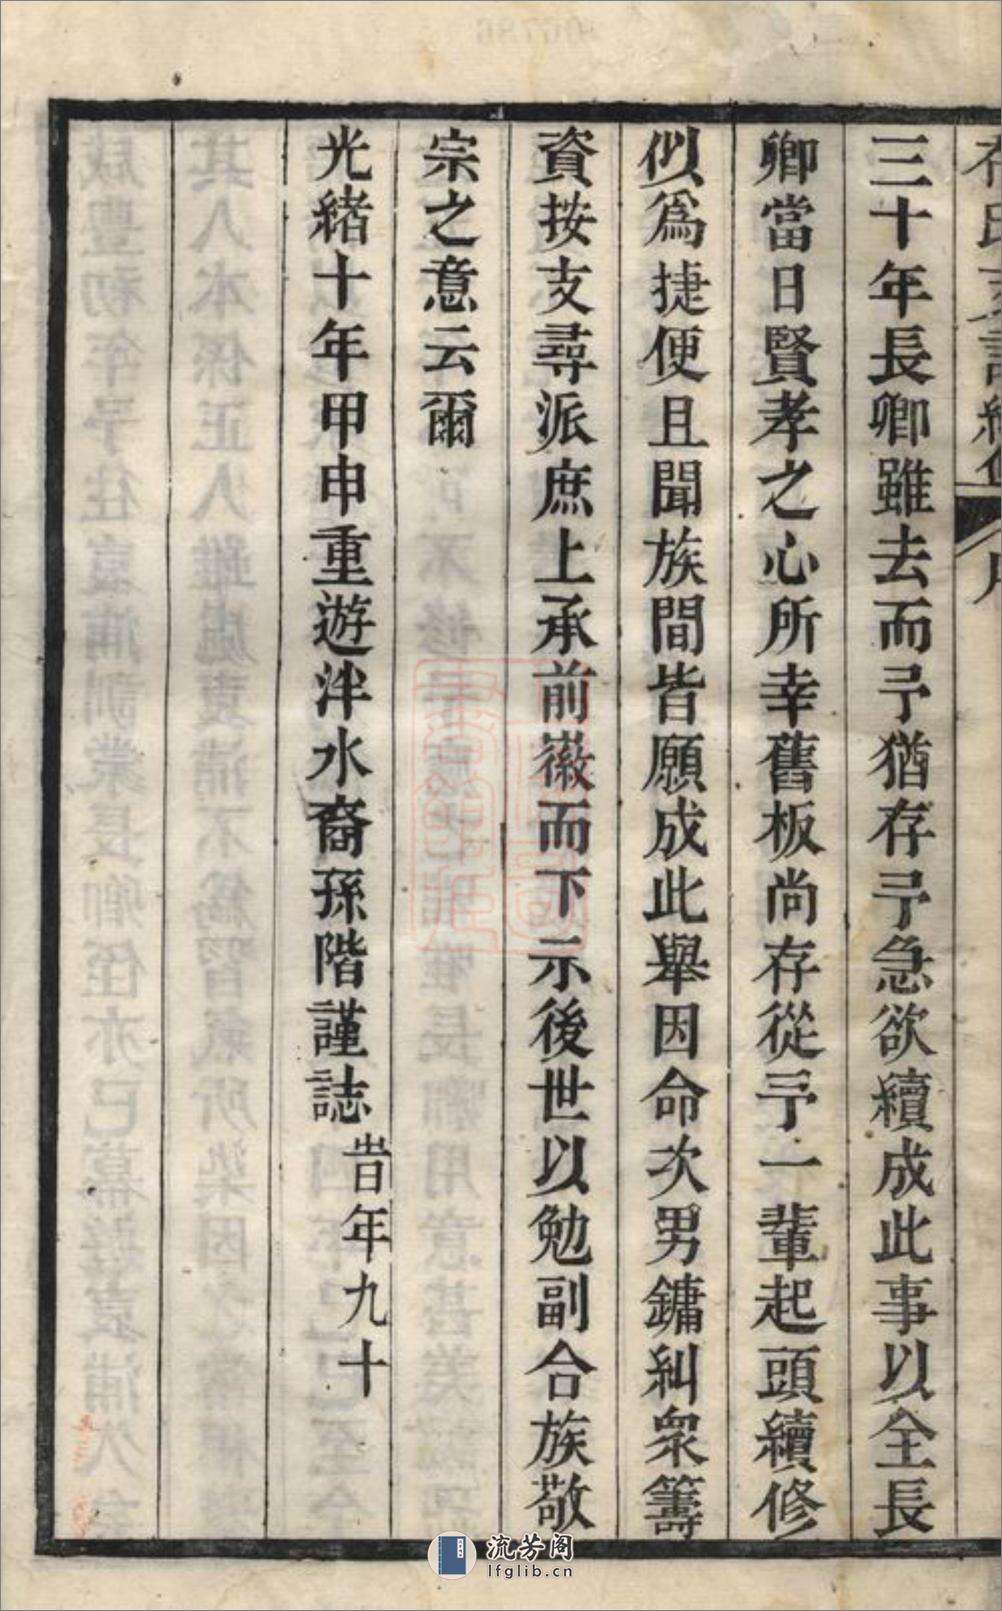 三十年長卿雖去而予猶存予急欲續成此事以全長
卿當日賢孝之心所幸舊板尚存從予一輩起頭續修
似爲捷便且聞族間皆願成此舉因命次男鏞糾衆籌
資按支尋派庶上承前徽而下示後世以勉副合族敬
宗之意云爾
光緒十年甲申重遊泮水裔孫階謹誌
旹年九十
流芳阁
lfglib.cn